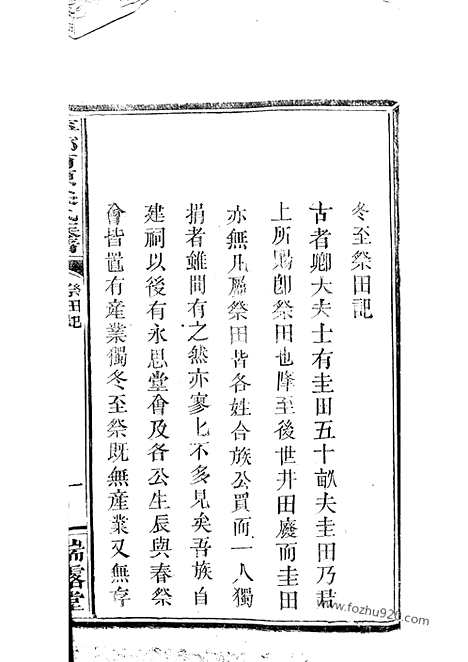 冬至祭田記
古者卿大夫士有圭田五十畝夫圭田乃君
上所賜卽祭田也降至後世井田廢而圭田
亦無凡屬祭田皆各姓合族公買而一人獨
捐者雖間有之然亦寥匕不多見矣吾族自
建祠以後有永思堂會及各公生辰與春祭
會皆置有產業獨冬至祭既無產業又無存
祭田記
一
瑞靄堂
www.fozhu920.com